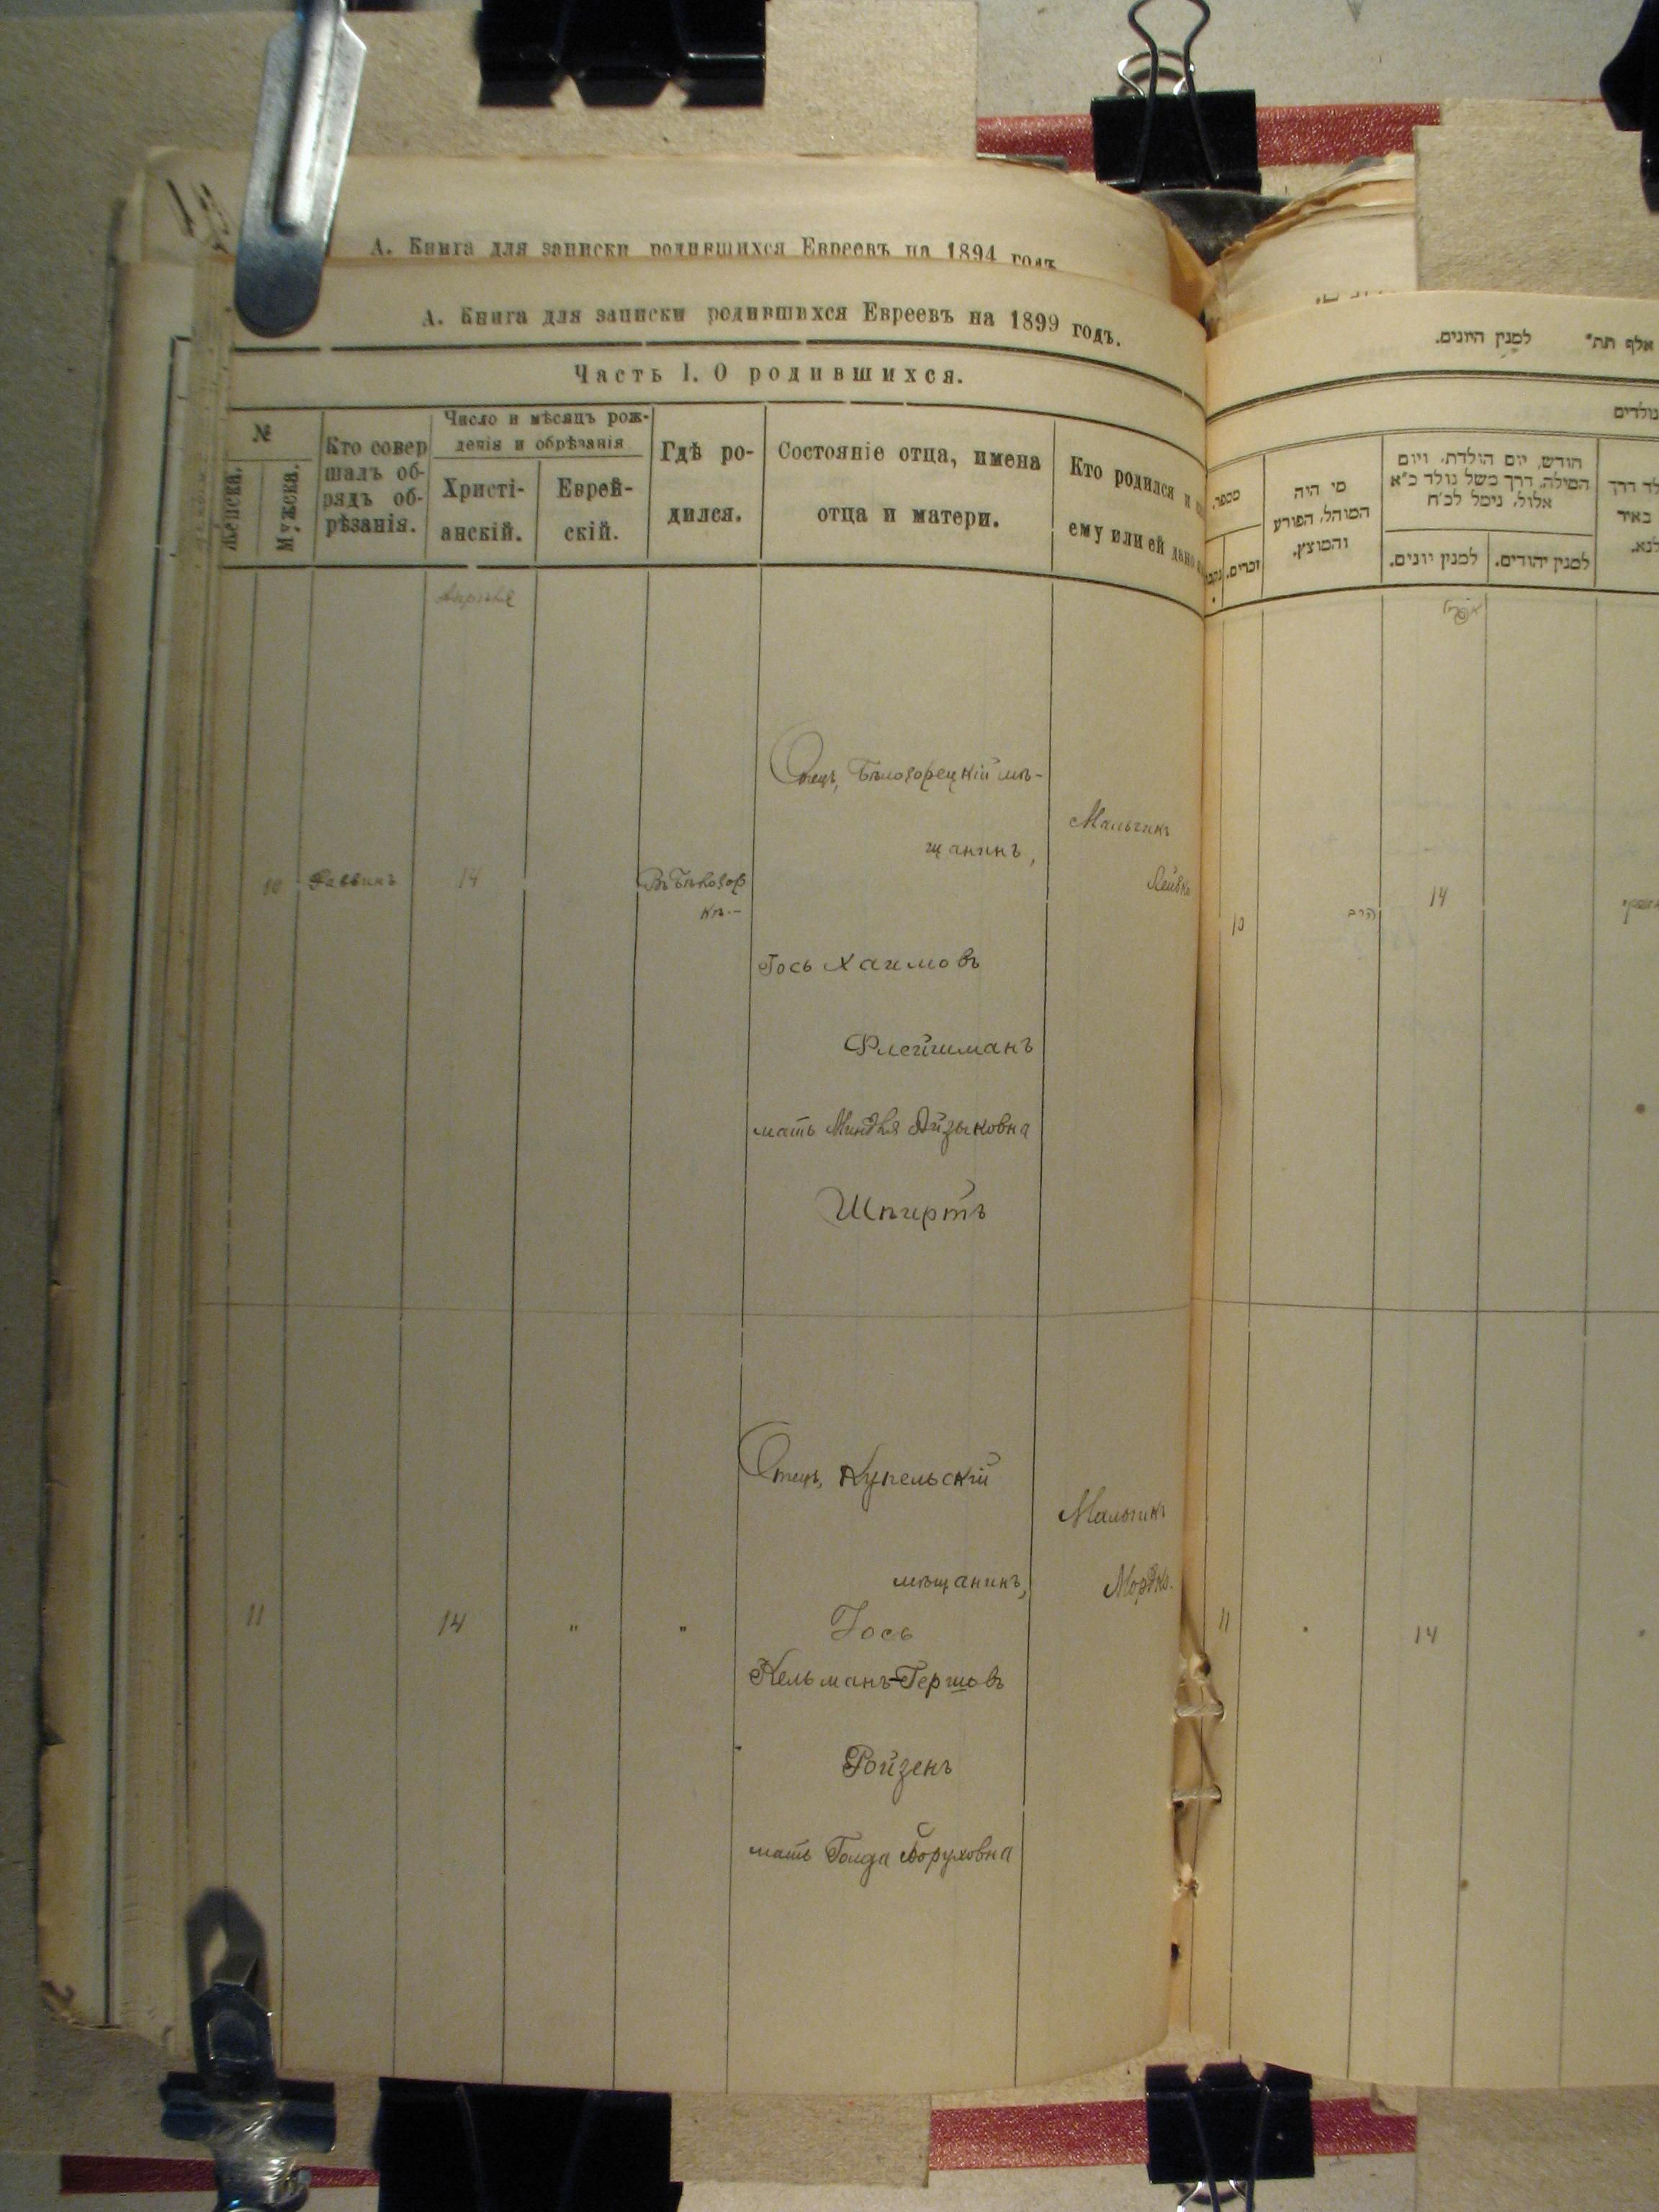 А. Книга для записки родившихся Евреевъ на 1894 годъ
А. Книга для записки родившихся Евреевъ на 1899 годъ.
Часть I. О родившихся.
№
Женска.
Мужска.
Кто совер
шалъ об-
рядъ об-
рѣзанія.
Число и мѣсяцъ рож-
денія и обрѣзанія
Христі-
анскій.
Еврей-
скій.
Гдѣ ро-
дился.
Состояніе отца, имена
отца и матери.
Кто родился и
ему или ей дано
Апрѣля
10
Раввинъ
14
Въ Бѣлозор
кѣ.-
Отецъ, Бѣлозорецкій мѣ-
щанинъ,
Іось Хаимовъ
Флейшманъ
мать Миндля Айзыковна
Шпиртъ
Мальчикъ
Лейбъ
11
14
"
"
Отецъ, Купельскій
мѣщанинъ,
Іось
Кельманъ-Гершовъ
Ройзенъ
мать Голда Боруховна
Мальчикъ
Мордко.
אלף תת"
למנין היונים.
נולדים
מספר.
זכרים.
מי היה
המוהל, הפורע
והמוצץ.
חודש, יום הולדת, ויום
המילה, דרך משל נולד כ"א
אלול, נימל לכ"ח
למנין יונים.
למנין יהודים.
לד דרך
באיר
לנא.
אפריל
10
הרב
14
11
14